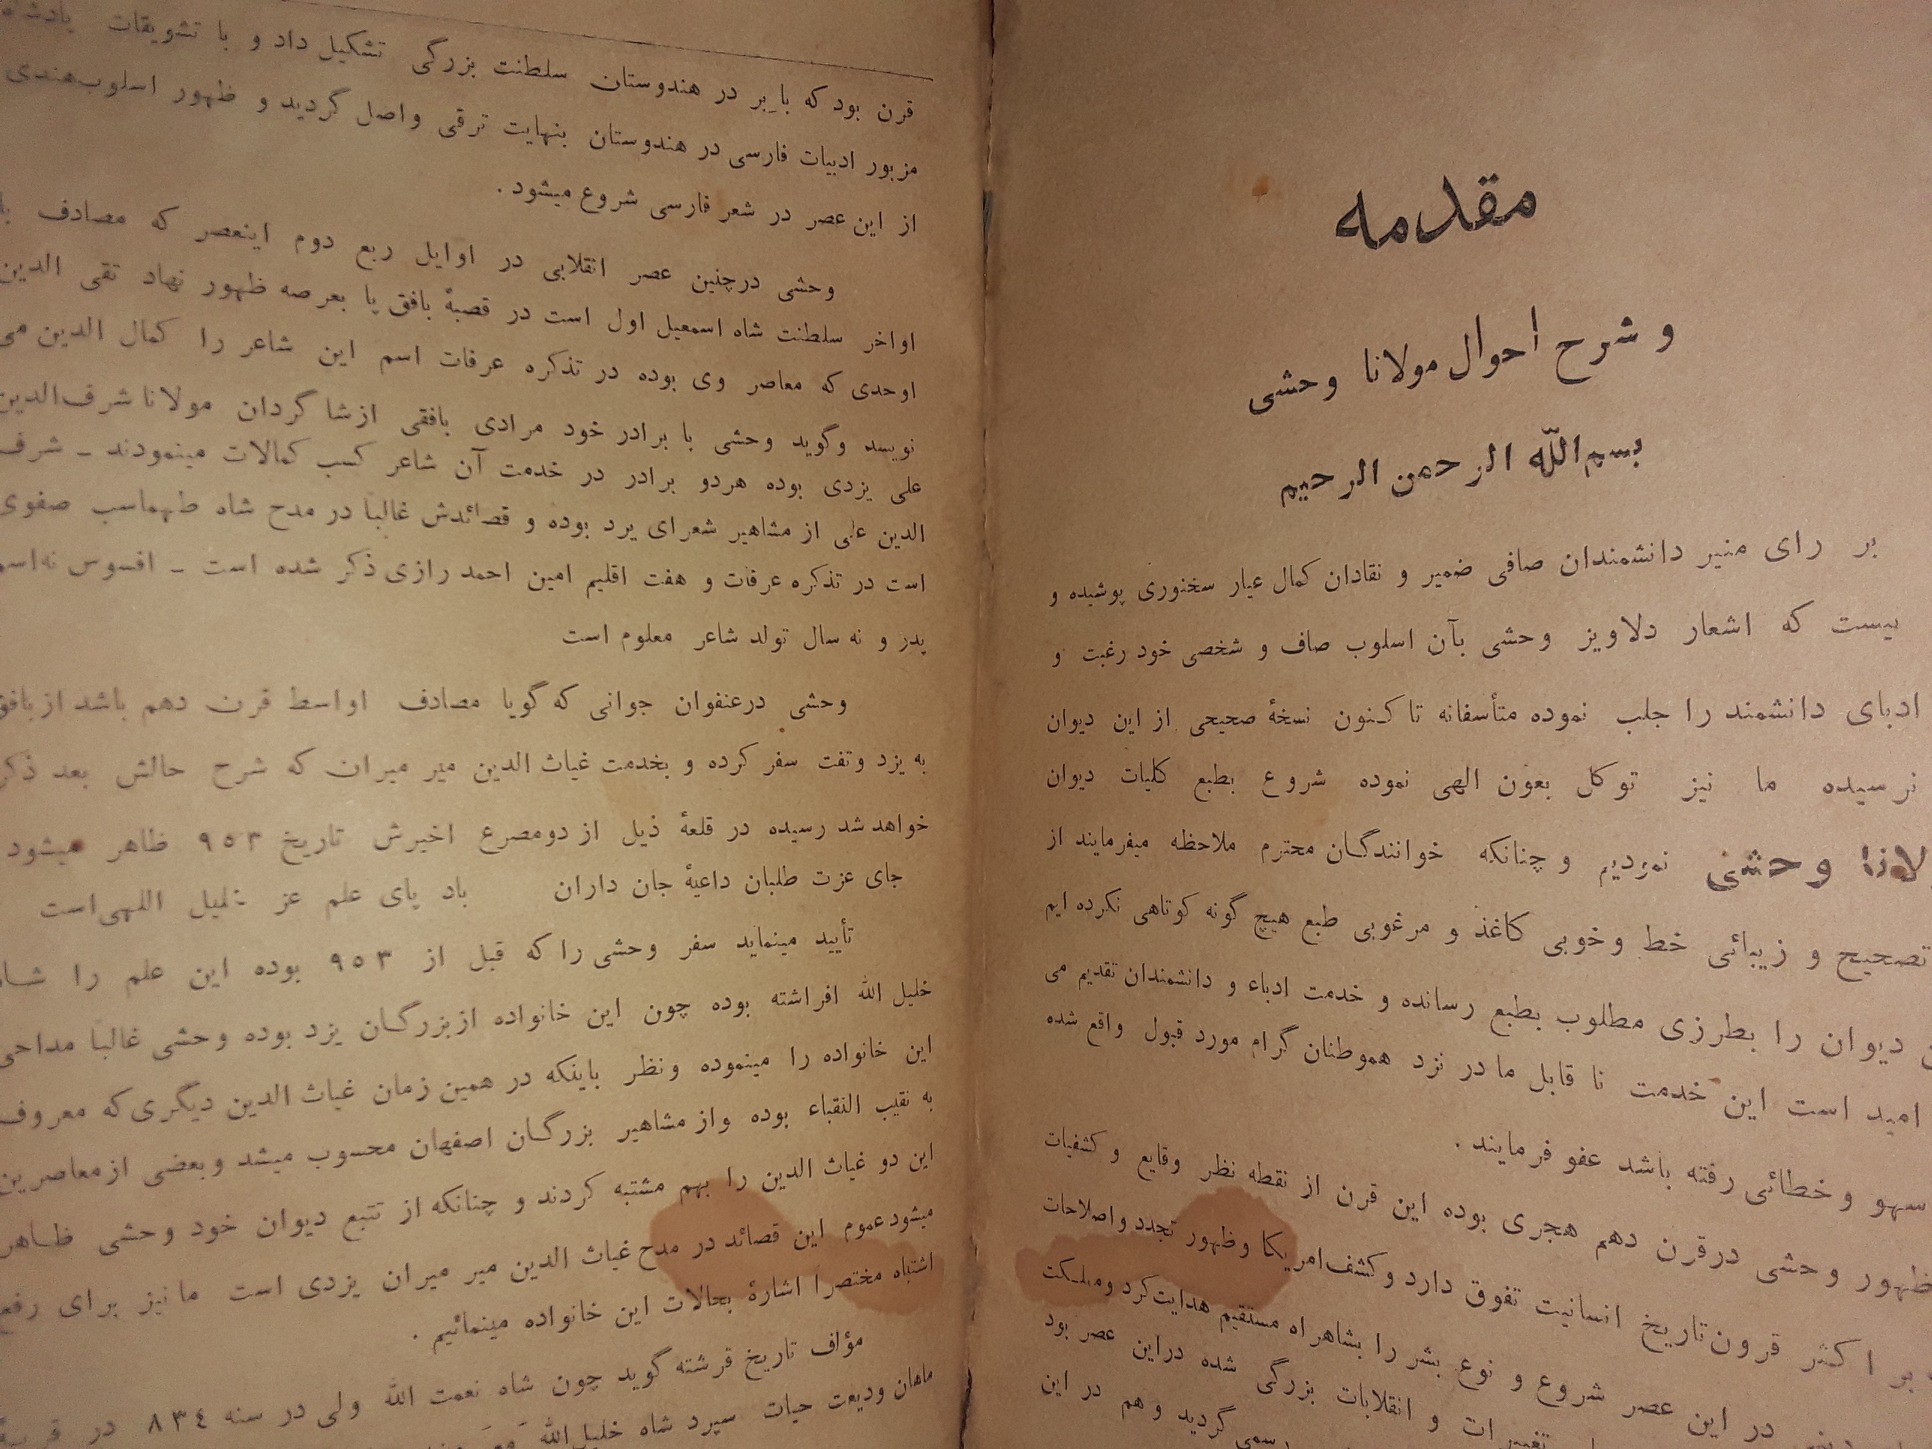 مقدمه
و شرح احوال مولانا وحشی
بسم‌الله الرحمن الرحیم
بر رای منیر دانشمندان صافی ضمیر و نقادان کمال عیار سخنوری پوشیده و
نیست که اشعار دلاویز وحشی بآن اسلوب صاف و شخصی خود رغبت و
ادبای دانشمند را جلب نموده متأسفانه تاکنون نسخهٔ صحیحی از این دیوان
نرسیده ما نیز توکل بعون الهی نموده شروع بطبع کلیات دیوان
وحشی نمودیم و چنانکه خوانندگان محترم ملاحظه میفرمایند از
تصحیح و زیبائی خط و خوبی کاغذ و مرغوبی طبع هیچ گونه کوتاهی نکرده ایم
دیوان را بطرزی مطلوب بطبع رسانده و خدمت ادباء و دانشمندان تقدیم می
امید است این خدمت نا قابل ما در نزد هموطنان گرام مورد قبول واقع شده
سهو و خطائی رفته باشد عفو فرمایند .
ظهور وحشی در قرن دهم هجری بوده این قرن از نقطه نظر وقایع و کشفیات
بر اکثر قرون تاریخ انسانیت تفوق دارد و کشف امریکا و ظهور تجدد و اصلاحات
در این عصر شروع و نوع بشر را بشاهراه مستقیم هدایت کرد و مملکت
تغییرات و انقلابات بزرگی شده در این عصر بود
گردید و هم در این
قرن بود که با بر در هندوستان سلطنت بزرگی تشکیل داد و با تشویقات
مزبور ادبیات فارسی در هندوستان بنهایت ترقی واصل گردید و ظهور اسلوب هندی
از این عصر در شعر فارسی شروع میشود .
وحشی در چنین عصر انقلابی در اوایل ربع دوم اینعصر که مصادف با
اواخر سلطنت شاه اسمعیل اول است در قصبهٔ بافق پا بعرصه ظهور نهاد تقی الدین
اوحدی که معاصر وی بوده در تذکره عرفات اسم این شاعر را کمال الدین می
نویسد و گوید وحشی با برادر خود مرادی بافقی از شاگردان مولانا شرف‌الدین
علی یزدی بوده هر دو برادر در خدمت آن شاعر کسب کمالات مینمودند ـ شرف
الدین علی از مشاهیر شعرای یزد بوده و قصائدش غالباً در مدح شاه طهماسب صفوی
است در تذکره عرفات و هفت اقلیم امین احمد رازی ذکر شده است ـ افسوس نه اسم
پدر و نه سال تولد شاعر معلوم است
وحشی در عنفوان جوانی که گویا مصادف اواسط قرن دهم باشد از بافق
به یزد و تفت سفر کرده و بخدمت غیاث الدین میر میران که شرح حالش بعد ذکر
خواهد شد رسیده در قلعهٔ ذیل از دو مصرع اخیرش تاریخ ۹۵۳ ظاهر میشود
جای عزت طلبان داعیهٔ جان داران    باد پای علم عز خلیل اللهی است
تأیید مینماید سفر وحشی را که قبل از ۹۵۳ بوده این علم را شاه
خلیل الله افراشته بوده چون این خانواده از بزرگان یزد بوده وحشی غالباً مداحی
این خانواده را مینموده و نظر باینکه در همین زمان غیاث الدین دیگری که معروف
به نقیب النقباء بوده و از مشاهیر بزرگان اصفهان محسوب میشد و بعضی از معاصرین
این دو غیاث الدین را بهم مشتبه کردند و چنانکه از تتبع دیوان خود وحشی ظاهر
میشود عموم این قصائد در مدح غیاث الدین میر میران یزدی است ما نیز برای رفع
اشتباه مختصرا اشارهٔ بحالات این خانواده مینمائیم .
مؤلف تاریخ فرشته گوید چون شاه نعمت الله ولی در سنه ۸۳۴ در قریه
ماهان ودیعت حیات سپرد شاه خلیل‌الله